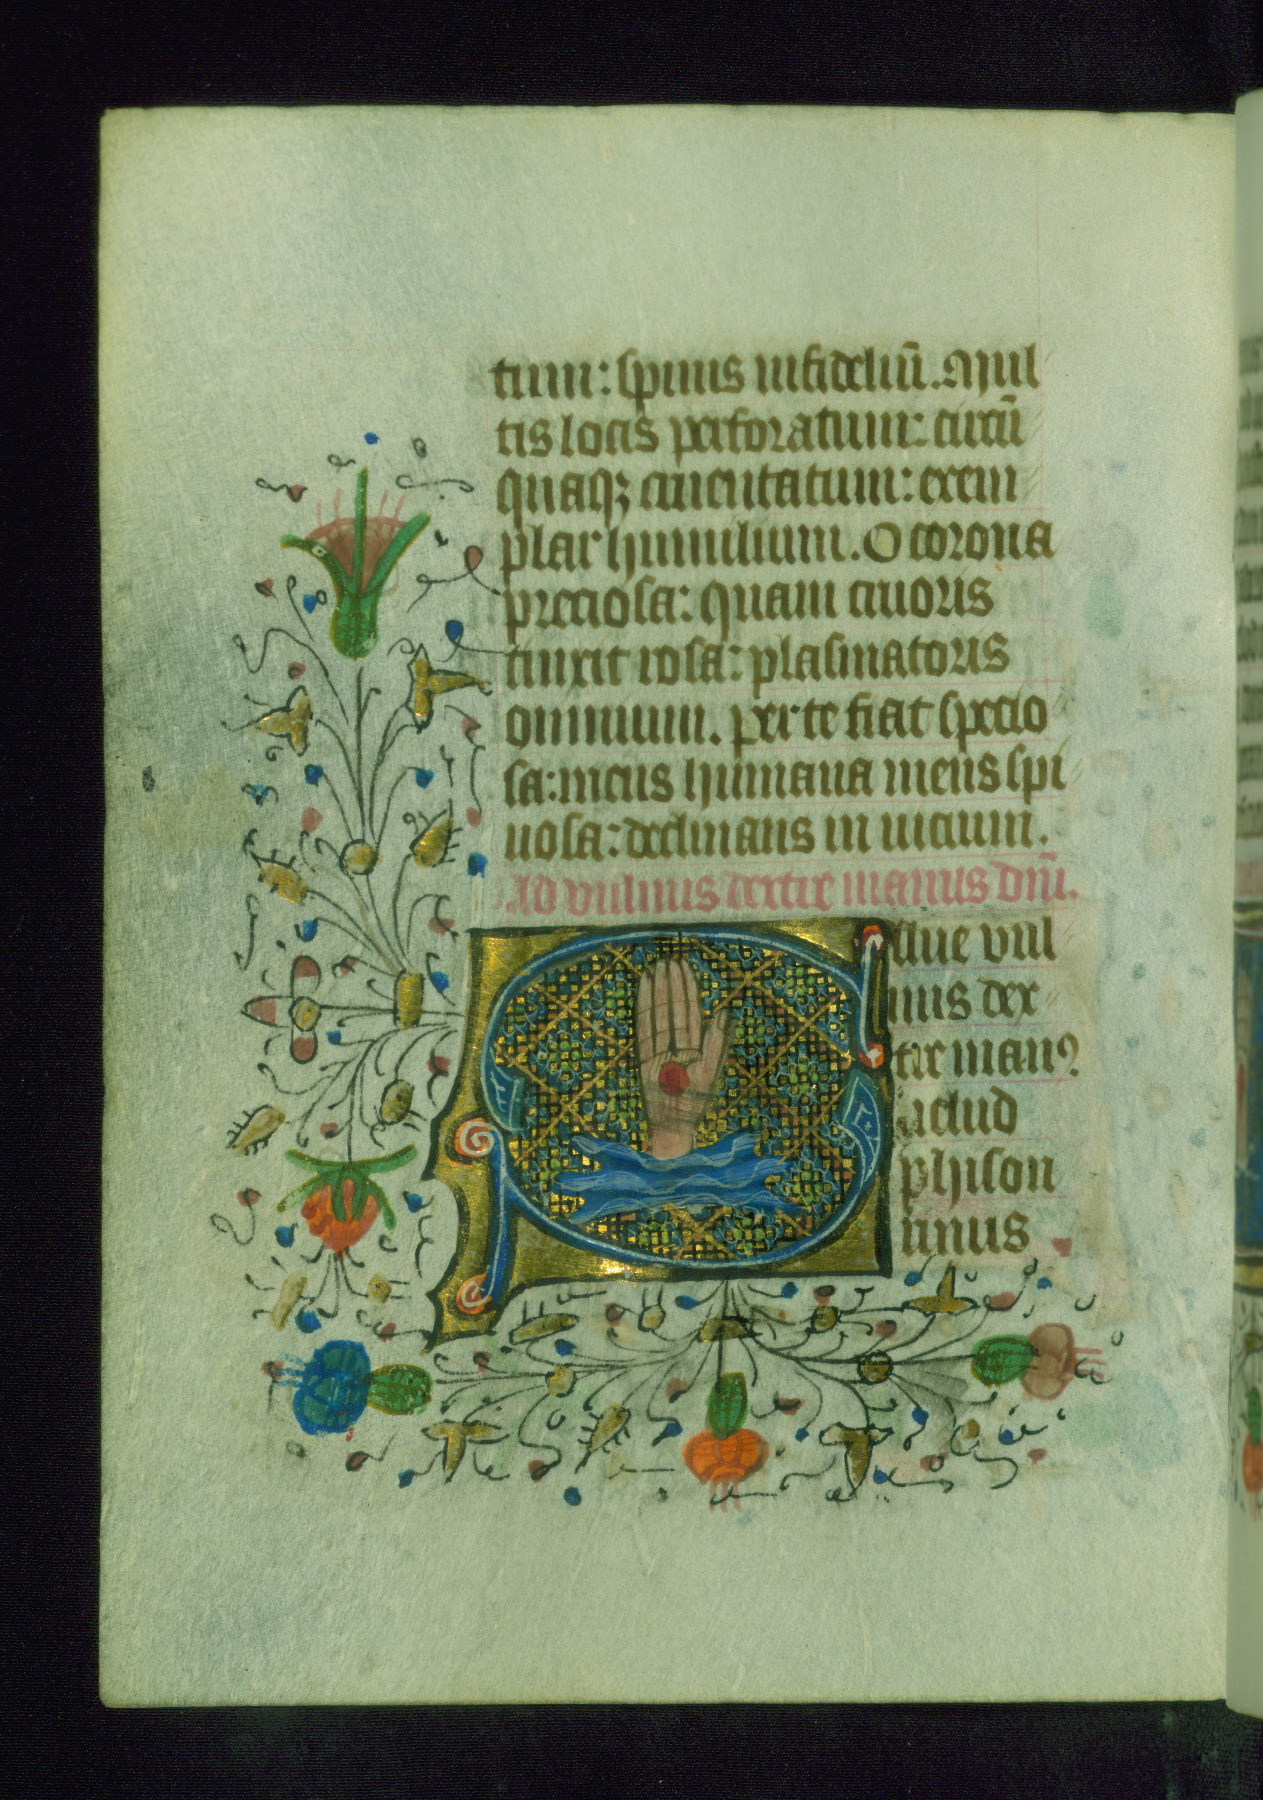 tum: spinis infideliū. Mul
tis locis perforatum: circū
quaqꝫ cruentatum: exem
plar humilium. O corona
preciosa: quam cruoris
tinxit rosa: plasmatoris
omnium. per te fiat specio
sa: meus humana mens spi
nosa: declinans in uicium.
Ad vulnus dextre manus dn̄i.
alue vul
nus dex
tre manꝰ
uelud
phison